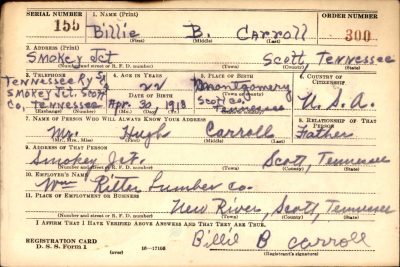 SERIAL NUMBER 1. NAME (Print) ORDER NUMBER
155 Billie B. Carroll 300
(First) (Middle) (Last)
2. ADDRESS (Print)
Smokey Jct Scott, Tennessee
(Number and street or R. F. D. number) (Town) (County) (State)
3. TELEPHONE 4. AGE IN YEARS 5. PLACE OF BIRTH 6. COUNTRY OF CITIZENSHIP
Tennessee Ry 22 Montgomery
Smokey Jct. Scott DATE OF BIRTH Scott Co. U.S.A.
Co, Tennessee Apr. 30, 1918 Tennessee
7. NAME OF PERSON WHO WILL ALWAYS KNOW YOUR ADDRESS 8. RELATIONSHIP OF THAT PERSON
Mr. Hugh Carroll Father
(Mr., Mrs., Miss) (First) (Middle) (Last)
9. ADDRESS OF THAT PERSON
Smokey Jct. Scott, Tennessee
(Number and street or R. F. D. number) (Town) (County) (State)
10. EMPLOYER'S NAME
Wm Ritter Lumber Co.
11. PLACE OF EMPLOYMENT OR BUSINESS
New River, Scott, Tennessee
(Number and street or R. F. D. number) (Town) (County) (State)
I AFFIRM THAT I HAVE VERIFIED ABOVE ANSWERS AND THAT THEY ARE TRUE.
REGISTRATION CARD
D. S. S. Form 1 (over) 16—17105 Billie B Carroll
(Registrant's signature)